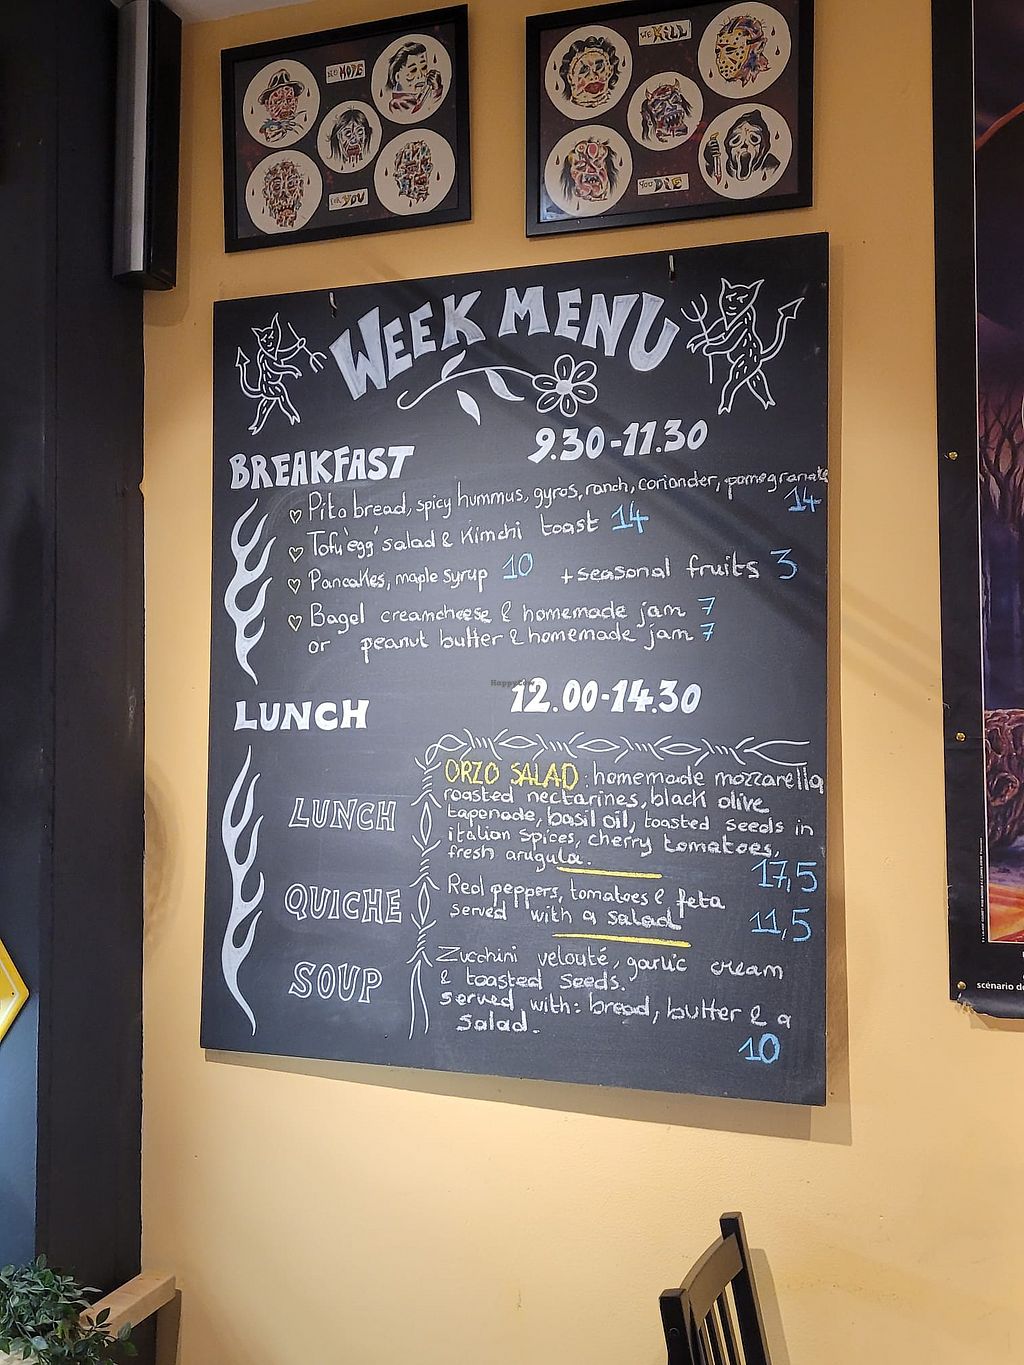 NO HOPE
FOR YOU
WE KILL
YOU DIE
WEEK MENU
BREAKFAST 9.30-11.30
Pita bread, spicy hummus, gyros, ranch, coriander, pomegranate
14
Tofu 'egg' salad & Kimchi toast 14
Pancakes, maple syrup 10 + seasonal fruits 3
Bagel creamcheese & homemade jam 7
or peanut butter & homemade jam 7
HappyCow
LUNCH 12.00-14.30
LUNCH
ORZO SALAD: homemade mozzarella
roasted nectarines, black olive
tapenade, basil oil, toasted seeds in
italian spices, cherry tomatoes,
fresh arugula.
17,5
QUICHE
Red peppers, tomatoes & feta
served with a salad
11,5
SOUP
Zucchini velouté, garlic cream
& toasted seeds.
served with: bread, butter & a
salad.
10
scénario de